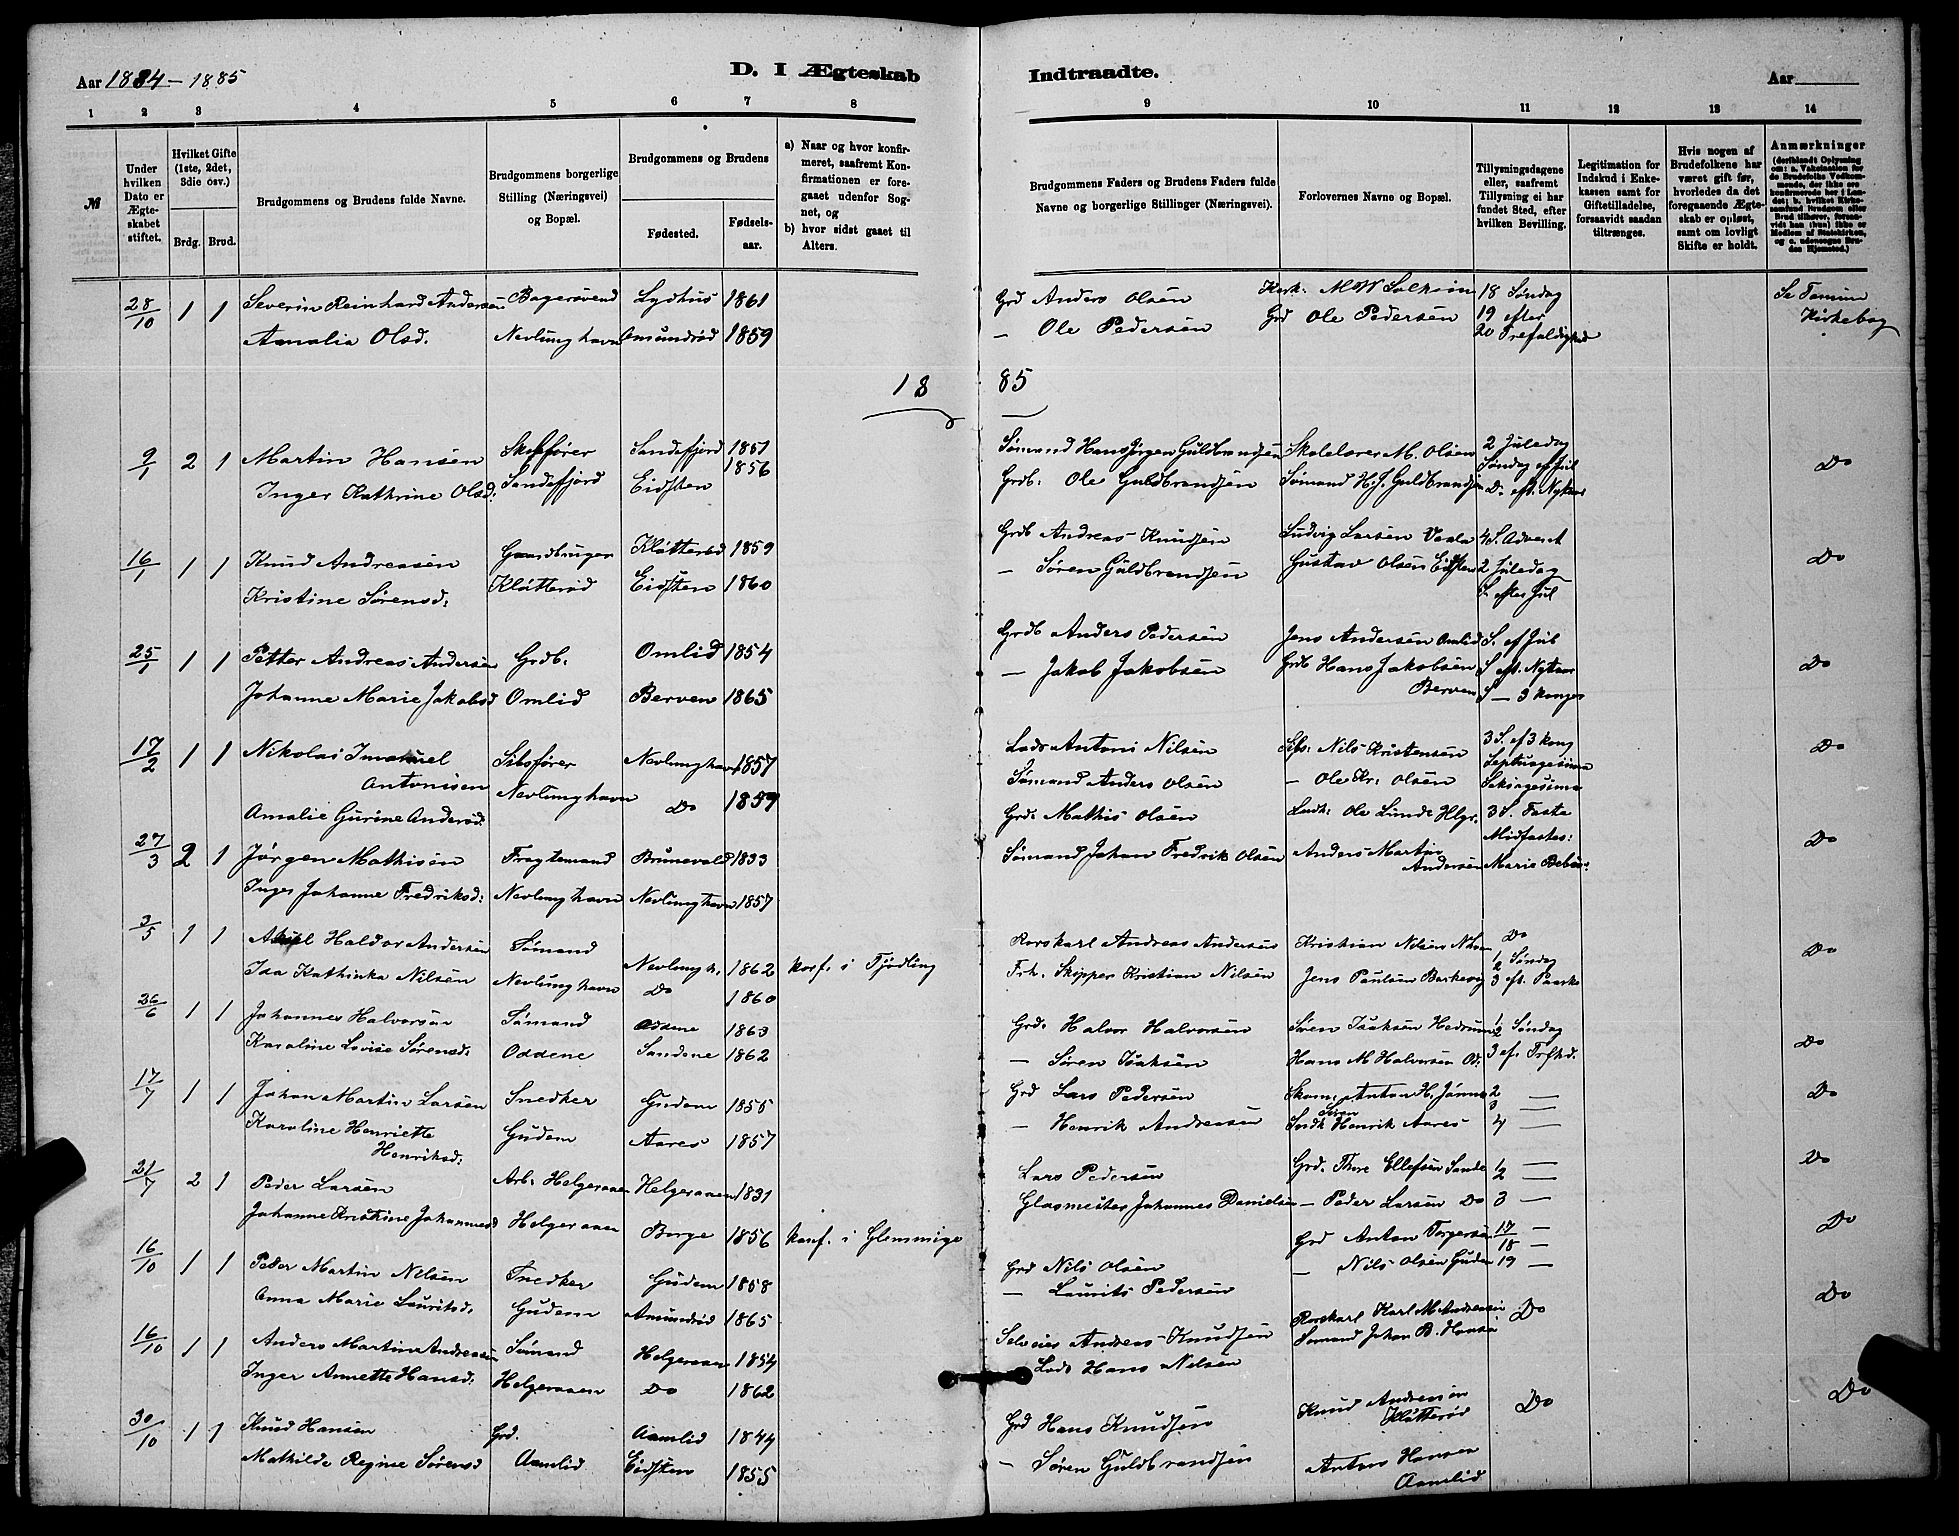 Aar 1884 - 1885
D. I Ægteskab
Indtraadte.
Aar
1 2 3 4 5 6 7 8 9 10 11 12 13 14
№
Under hvilken Dato er Ægteskabet stiftet.
Hvilket Gifte (1ste, 2det, 3die osv.)
Brdg. Brud.
Brudgommens og Brudens fulde Navne.
Brudgommens borgerlige Stilling (Næringsvei) og Bopæl.
Brudgommens og Brudens
Fødested.
Fødselsaar.
a) Naar og hvor konfirmeret, saafremt Konfirmationen er foregaaet udenfor Sognet, og
b) hvor sidst gaaet til Alters.
Brudgommens Faders og Brudens Faders fulde Navne og borgerlige Stillinger (Næringsvei).
Forlovernes Navne og Bopæl.
Tillysningsdagene eller, saafremt Tillysning ei har fundet Sted, efter hvilken Bevilling.
Legitimation for Indskud i Enkekassen samt for Giftetilladelse, forsaavidt saadan tiltrænges.
Hvis nogen af Brudefolkene har været gift før, hvorledes da det foregaaende Ægteskab er opløst, samt om lovligt Skifte er holdt.
Anmærkninger (deriblandt Oplysning om: a. Vakcination for de Brudefolks Vedkommende, der ikke ere konfirmerede her i Landet; b. hvilket Kirkesamfund Brudgom eller Brud tilhører, forsaavidt han (hun) ikke er Medlem af Statskirken, og c. udensogns Brudes Hjemsted.)
28/10 1 1 Severin Reinhard Andersen Lysthus 1861 Grd Anders Olsen 18 Søndag
Amalia Olsd. Nevlunghavn Omundrød 1859 — Ole Pedersen Grd Ole Pedersen 19 efter
20 Trefoldighed
Kirkebog
18 85
9/1 2 1 Martin Hansen Skibsfører Sandefjord 1851 Sømand Hans Jørgen Guldbrandsen Skolelærer M. Olsen 2 Juledag
Inger Kathrine Olsd: Sandefjord Eidsten 1856 Grdb: Ole Guldbrandsen Sømand H. J. Guldbrandsen Søndag ef Jul
D. eft. Nytaar Do
16/1 1 1 Knud Andreasen Gaardbruger Kløtterød 1859 Grdb Andreas Knudsen Ludvig Larsen Vaala 4 S. Advent
Kristine Sørensd: Kløtterød Eidsten 1860 — Søren Guldbrandsen Gustav Olsen Eidsten 2 Juledag
S. efter Jul Do
25/1 1 1 Petter Andreas Andersen Grdb. Omlid 1854 Grdb Anders Pedersen Jens Andersen Omlid S. ef Jul
Johanne Marie Jakobsd Omlid Berven 1865 — Jakob Jakobsen Grdb Hans Jakobsen Berven S eft. Nytaar
S — 3 konger Do
17/2 1 1 Nikolai Imanuel Antonisen Skibsfører Nevlunghavn 1857 Lods Antoni Nilsen Nils Kristensen 3 S. ef 3 kong
Amalie Gurine Andersd: Nevlunghavn Do 1859 Sømand Anders Olsen — Ole Kr. Olsen Septuagesima
Seksagesima Do
27/3 2 1 Jørgen Mathisen Fragtemand Brunevald 1833 Grd. Mathis Olsen Ole Lunde Hlgr. 3 S. Faste
Inger Johanne Fredriksd: Nevlunghavn Nevlunghavn 1857 Sømand Johan Fredrik Olsen Anders Martin Andersen Midfaste:
Marie Bebu: Do
3/5 1 1 Haldor Andersen Sømand Nevlungh. 1862 konf. i Tjødling Andreas Andersen Kristian Nilsen Do
Ida Kathinka Nilsen Nevlunghavn Do 1860 Skipper Kristian Nilsen Jens Paulsen Barkevig 1 2 Søndag
3 eft. Paaske Do
26/6 1 1 Johannes Halvorsen Sømand Oddene 1863 Grd. Halvor Halvorsen Søren Isaksen Hedrum 1/2 Søndag
Karoline Lovise Sørensd. Oddene Sandene 1862 — Søren Isaksen Hans M Halvorsen Od: 3 ef. Trfhd. Do
17/7 1 1 Johan Martin Larsen Snedker Gudem 1855 Grd Lars Pedersen Anton H. 2 —
Karoline Henriette Henriksd: Gudem Aares 1857 — Henrik Andreasen Søren Henrik Aares 3 —
4 — Do
21/7 2 1 Peder Larsen Arb. Helgeraaen Helgeraaen 1831 Lars Pedersen Grd. Thore Ellefsen Sande 1/2 —
Johanne Kristine Johannesd Helgeraaen Borge 1856 konf. i Glemminge Glasmester Johannes Danielsen — Peder Larsen Do 3 — Do
16/10 1 1 Peder Martin Nilsen Snedker Gudem 1858 Grd Nils Olsen Grd Anton Torgersen 17 —
Anna Marie Lauritsd. Gudem Amundrød 1865 — Laurits Pedersen — Nils Olsen Gudem 18 —
19 — Do
16/10 1 1 Anders Martin Andreasen Sømand Helgeraaen 1854 Selveier Andreas Knudsen Karl M Andreasen Do
Inger Annette Hansd: Helgeraaen Do 1862 Lods Hans Nilsen Sømand Johan B. Hansen Do
30/10 1 1 Knud Hansen Grd. Aamlid 1844 Grd Hans Knudsen Knud Andreasen Kløtterød Do
Mathilde Regine Sørensd Aamlid Eidsten 1855 — Søren Guldbrandsen Anton Hansen Aamlid Do